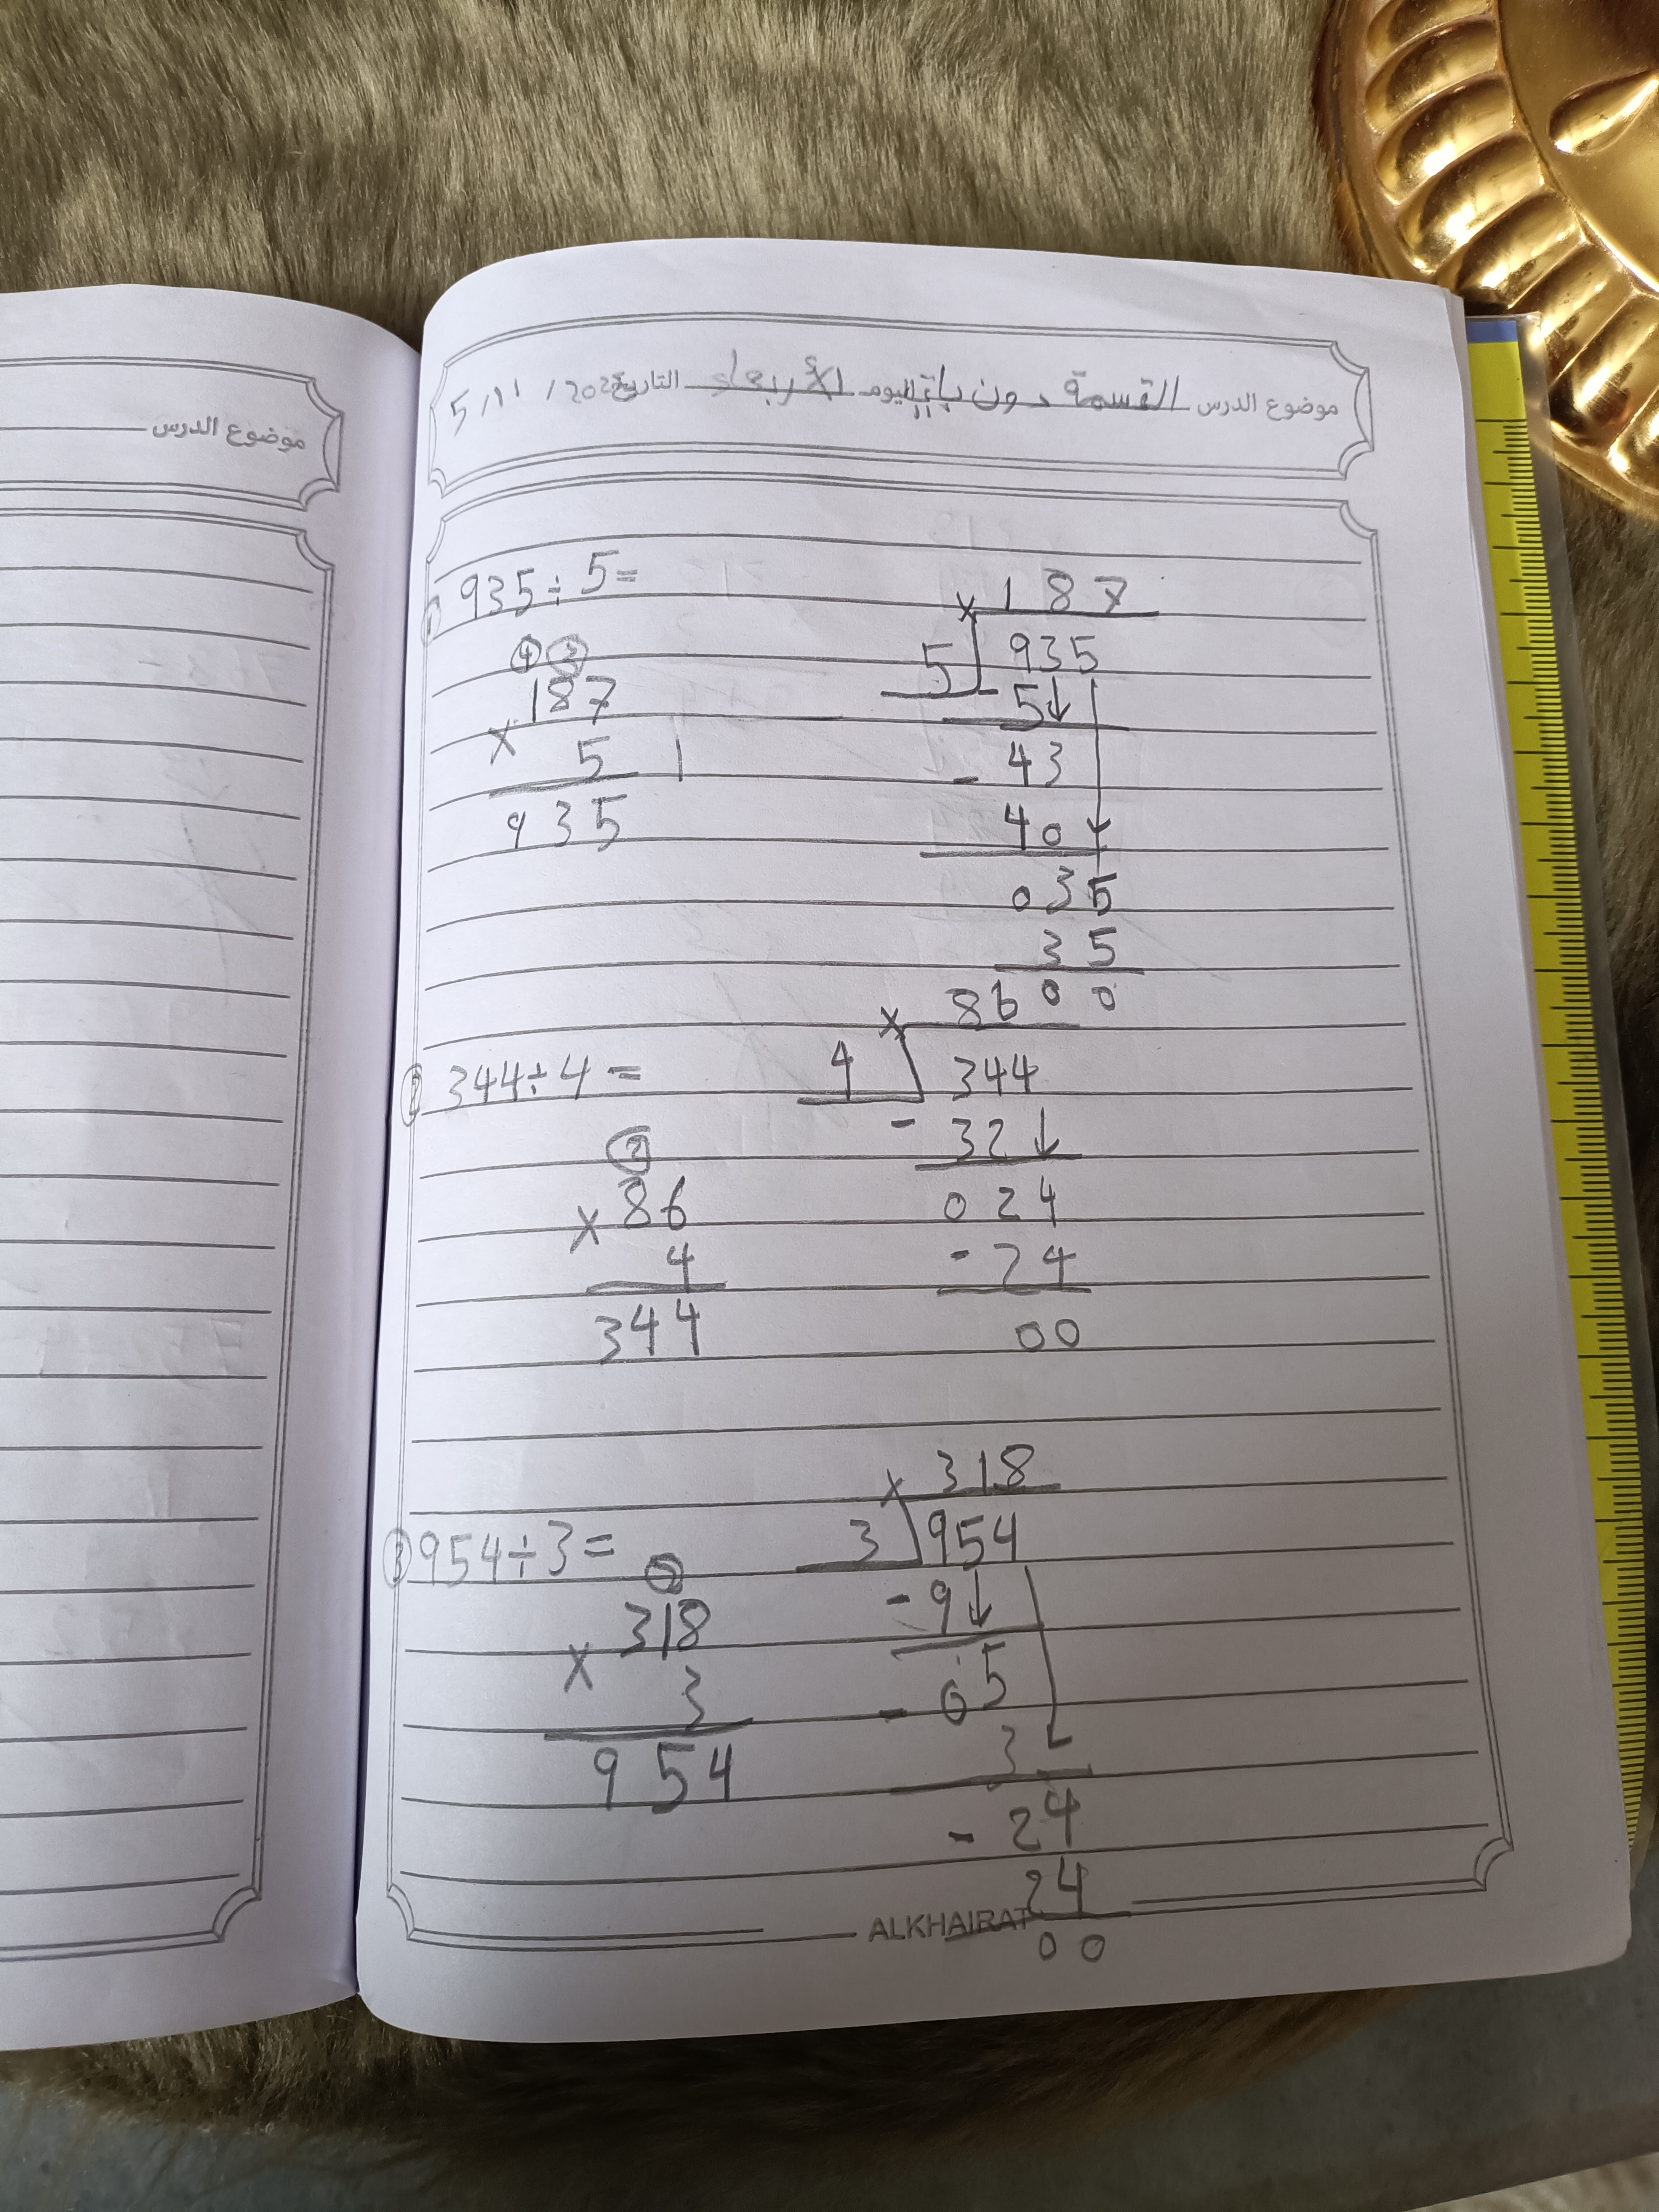 موضوع الدرس القسمة دون باقي اليوم الأربعاء التاريخ 5/11/202
موضوع الدرس
① 935÷5=
187
5 935
5
43
- 40
035
35
00
④③
187
× 5
935
② 344÷4=
86
4 344
- 32
024
- 24
00
②
86
× 4
344
③ 954÷3=
318
3 954
- 9
05
- 3
24
- 24
00
②
318
× 3
954
ALKHAIRAT